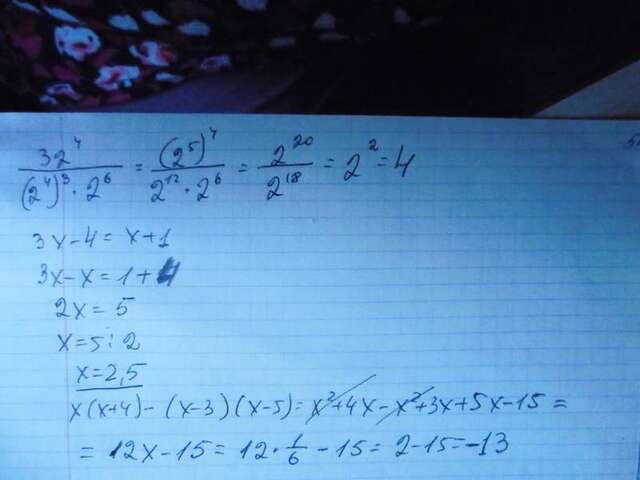 32⁴/((2⁴)³ · 2⁶) = (2⁵)⁴/(2¹² · 2⁶) = 2²⁰/2¹⁸ = 2² = 4
3x-4 = x+1
3x-x = 1+4
2x = 5
x = 5:2
x = 2,5
x(x+4) - (x-3)(x-5) = x²+4x-x²+3x+5x-15 =
= 12x-15 = 12·1/6 - 15 = 2-15 = -13